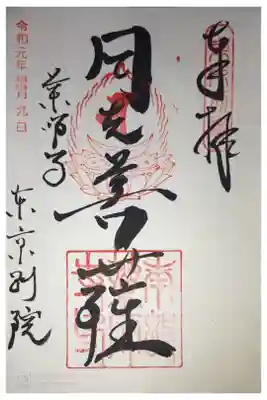 奉拝
月光菩薩
薬師寺
東京別院
令和元年 月 九日